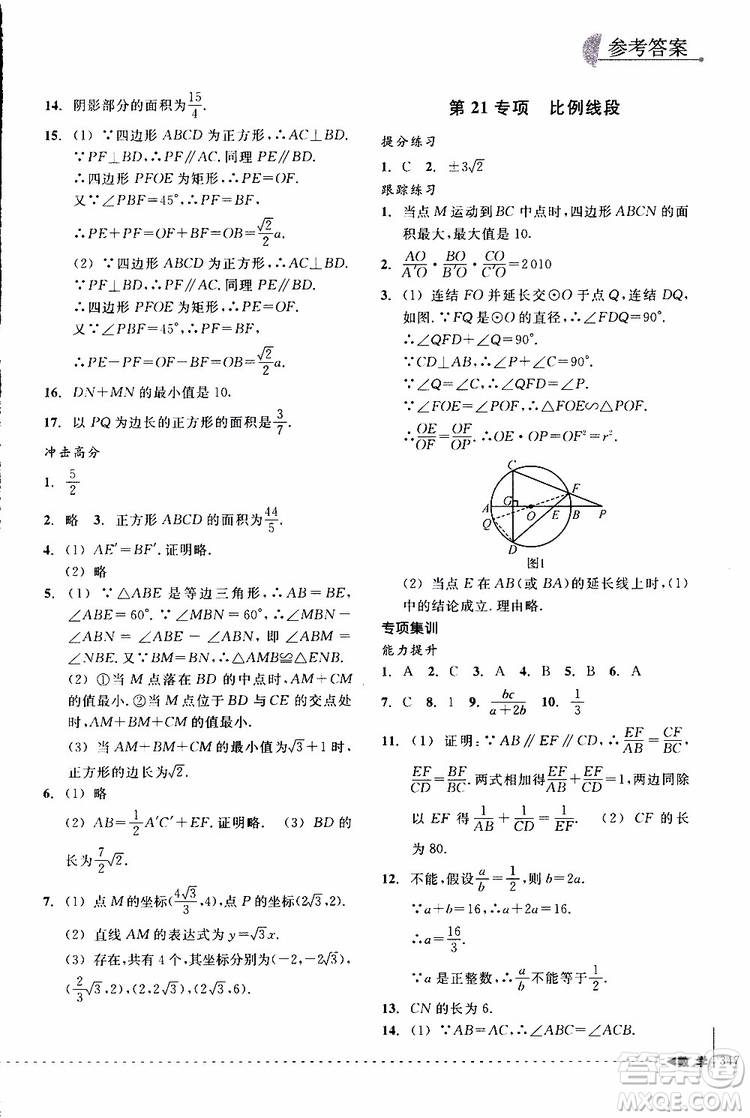 参考答案
14. 阴影部分的面积为15/4.
15. (1) ∵四边形 ABCD 为正方形,∴AC⊥BD.
∵PF⊥BD,∴PF∥AC.同理 PE∥BD.
∴四边形 PFOE 为矩形,∴PE=OF.
又∵∠PBF=45°,∴PF=BF,
∴PE+PF=OF+BF=OB=√2/2 a.
(2) ∵四边形 ABCD 为正方形,∴AC⊥BD.
∵PF⊥BD,∴PF∥AC.同理 PE∥BD.
∴四边形 PFOE 为矩形,∴PE=OF.
又∵∠PBF=45°,∴PF=BF,
∴PE-PF=OF-BF=OB=√2/2 a.
16. DN+MN 的最小值是 10.
17. 以 PQ 为边长的正方形的面积是3/7.
冲击高分
1. 5/2
2. 略 3. 正方形 ABCD 的面积为44/5.
4. (1) AE′=BF′.证明略.
(2) 略
5. (1) ∵△ABE 是等边三角形,∴AB=BE,
∠ABE=60°.∵∠MBN=60°,∴∠MBN-
∠ABN=∠ABE-∠ABN,即∠ABM=
∠NBE.又∵MB=NB,∴△AMB≌△ENB.
(2) ①当 M 点落在 BD 的中点时,AM+CM
的值最小.②当 M 点位于 BD 与 CE 的交点处
时,AM+BM+CM 的值最小.
(3) 当 AM+BM+CM 的最小值为√3+1时,
正方形的边长为√2.
6. (1) 略
(2) AB=1/2 A′C′+EF.证明略. (3) BD 的
长为7/2 √2.
7. (1) 点 M 的坐标(4√3/3,4),点 P 的坐标(2√3,2).
(2) 直线 AM 的表达式为 y=√3x.
(3) 存在,共有 4 个,坐标分别为(-2,-2√3),
(2/3 √3,2),(2√3,-2),(2,2√3).
第 21 专项 比例线段
提分练习
1. C 2. ±3√2
跟踪练习
1. 当点 M 运动到 BC 中点时,四边形 ABCN 的面
积最大,最大值是 10.
2. AO/A′O·BO/B′O·CO/C′O=2010
3. (1) 连结 FO 并延长交⊙O 于点 Q,连结 DQ,
如图.∵FQ 是⊙O 的直径,∴∠QFD=90°.
∴∠QFD+∠Q=90°.
∵CD⊥AB,∴∠P+∠C=90°.
∵∠Q=∠C,∴∠QFD=∠P.
∵∠FOE=∠POF,∴△FOE∽△POF.
∴OE/OF=OF/OP.∴OE·OP=OF²=r².
C
F
A G O E B P
Q
D
图1
(2) 当点 E 在 AB(或 BA)的延长线上时,(1)
中的结论成立.理由略.
专项集训
能力提升
1. A 2. C 3. A 4. B 5. B 6. A
7. C 8. 1 9. bc/(a+2b) 10. 1/3
11. (1) 证明:∵AB∥EF∥CD,∴EF/AB=CF/BC,
EF/CD=BF/BC.两式相加得EF/AB+EF/CD=1,两边同除
以 EF 得1/AB+1/CD=1/EF. (2) CF 的长
为 80.
12. 不能,假设a/b=1/2,则 b=2a.
∵a+b=16,∴a+2a=16.
∴a=16/3.
∵a 是正整数,∴a/b不可能等于1/2.
13. CN 的长为 6.
14. (1) ∵AB=AC,∴∠ABC=∠ACB.
数 学 347
答案圈
MXQE.COM